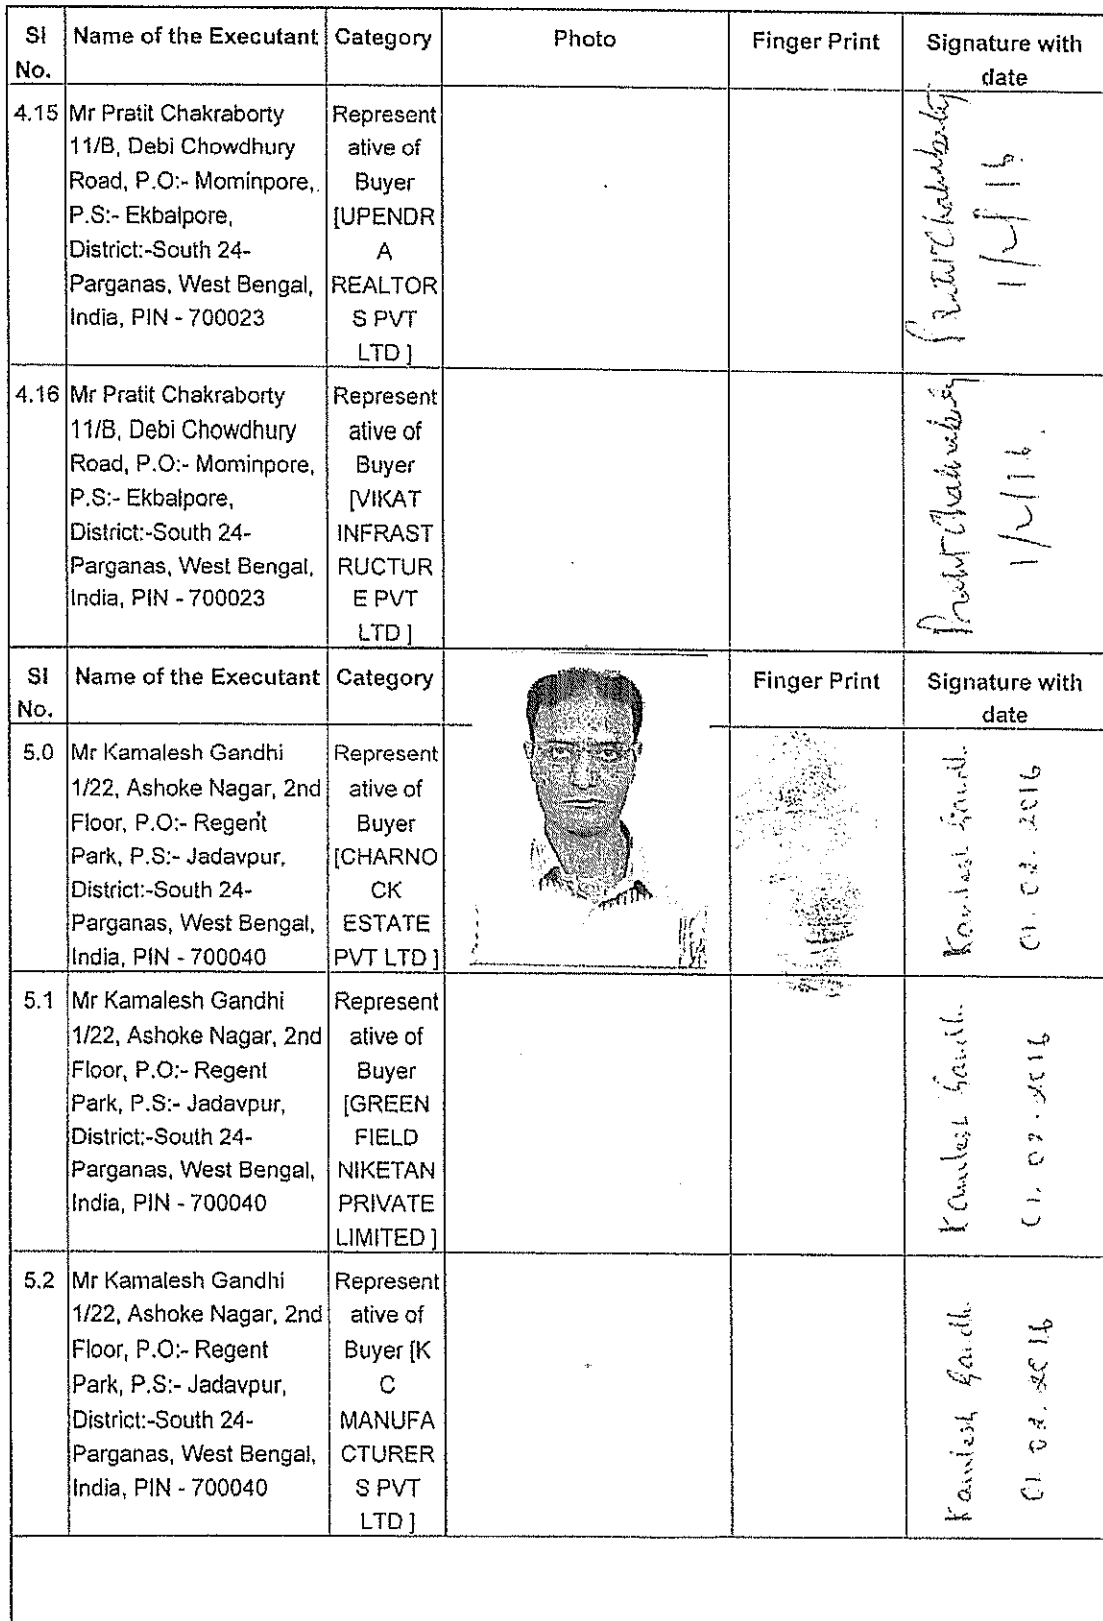 SI No. Name of the Executant Category Photo Finger Print Signature with date
4.15 Mr Pratit Chakraborty
11/B, Debi Chowdhury
Road, P.O:- Mominpore,
P.S:- Ekbalpore,
District:-South 24-
Parganas, West Bengal,
India, PIN - 700023
Represent
ative of
Buyer
[UPENDR
A
REALTOR
S PVT
LTD ]
Pratit Chakraborty
1/2/16
4.16 Mr Pratit Chakraborty
11/B, Debi Chowdhury
Road, P.O:- Mominpore,
P.S:- Ekbalpore,
District:-South 24-
Parganas, West Bengal,
India, PIN - 700023
Represent
ative of
Buyer
[VIKAT
INFRAST
RUCTUR
E PVT
LTD ]
Pratit Chakraborty
1/2/16.
SI No. Name of the Executant Category Finger Print Signature with date
5.0 Mr Kamalesh Gandhi
1/22, Ashoke Nagar, 2nd
Floor, P.O:- Regent
Park, P.S:- Jadavpur,
District:-South 24-
Parganas, West Bengal,
India, PIN - 700040
Represent
ative of
Buyer
[CHARNO
CK
ESTATE
PVT LTD ]
Kamlesh Gandhi
01.02.2016
5.1 Mr Kamalesh Gandhi
1/22, Ashoke Nagar, 2nd
Floor, P.O:- Regent
Park, P.S:- Jadavpur,
District:-South 24-
Parganas, West Bengal,
India, PIN - 700040
Represent
ative of
Buyer
[GREEN
FIELD
NIKETAN
PRIVATE
LIMITED ]
Kamlesh Gandhi
01.02.2016
5.2 Mr Kamalesh Gandhi
1/22, Ashoke Nagar, 2nd
Floor, P.O:- Regent
Park, P.S:- Jadavpur,
District:-South 24-
Parganas, West Bengal,
India, PIN - 700040
Represent
ative of
Buyer [K
C
MANUFA
CTURER
S PVT
LTD ]
Kamlesh Gandhi
01.02.2016